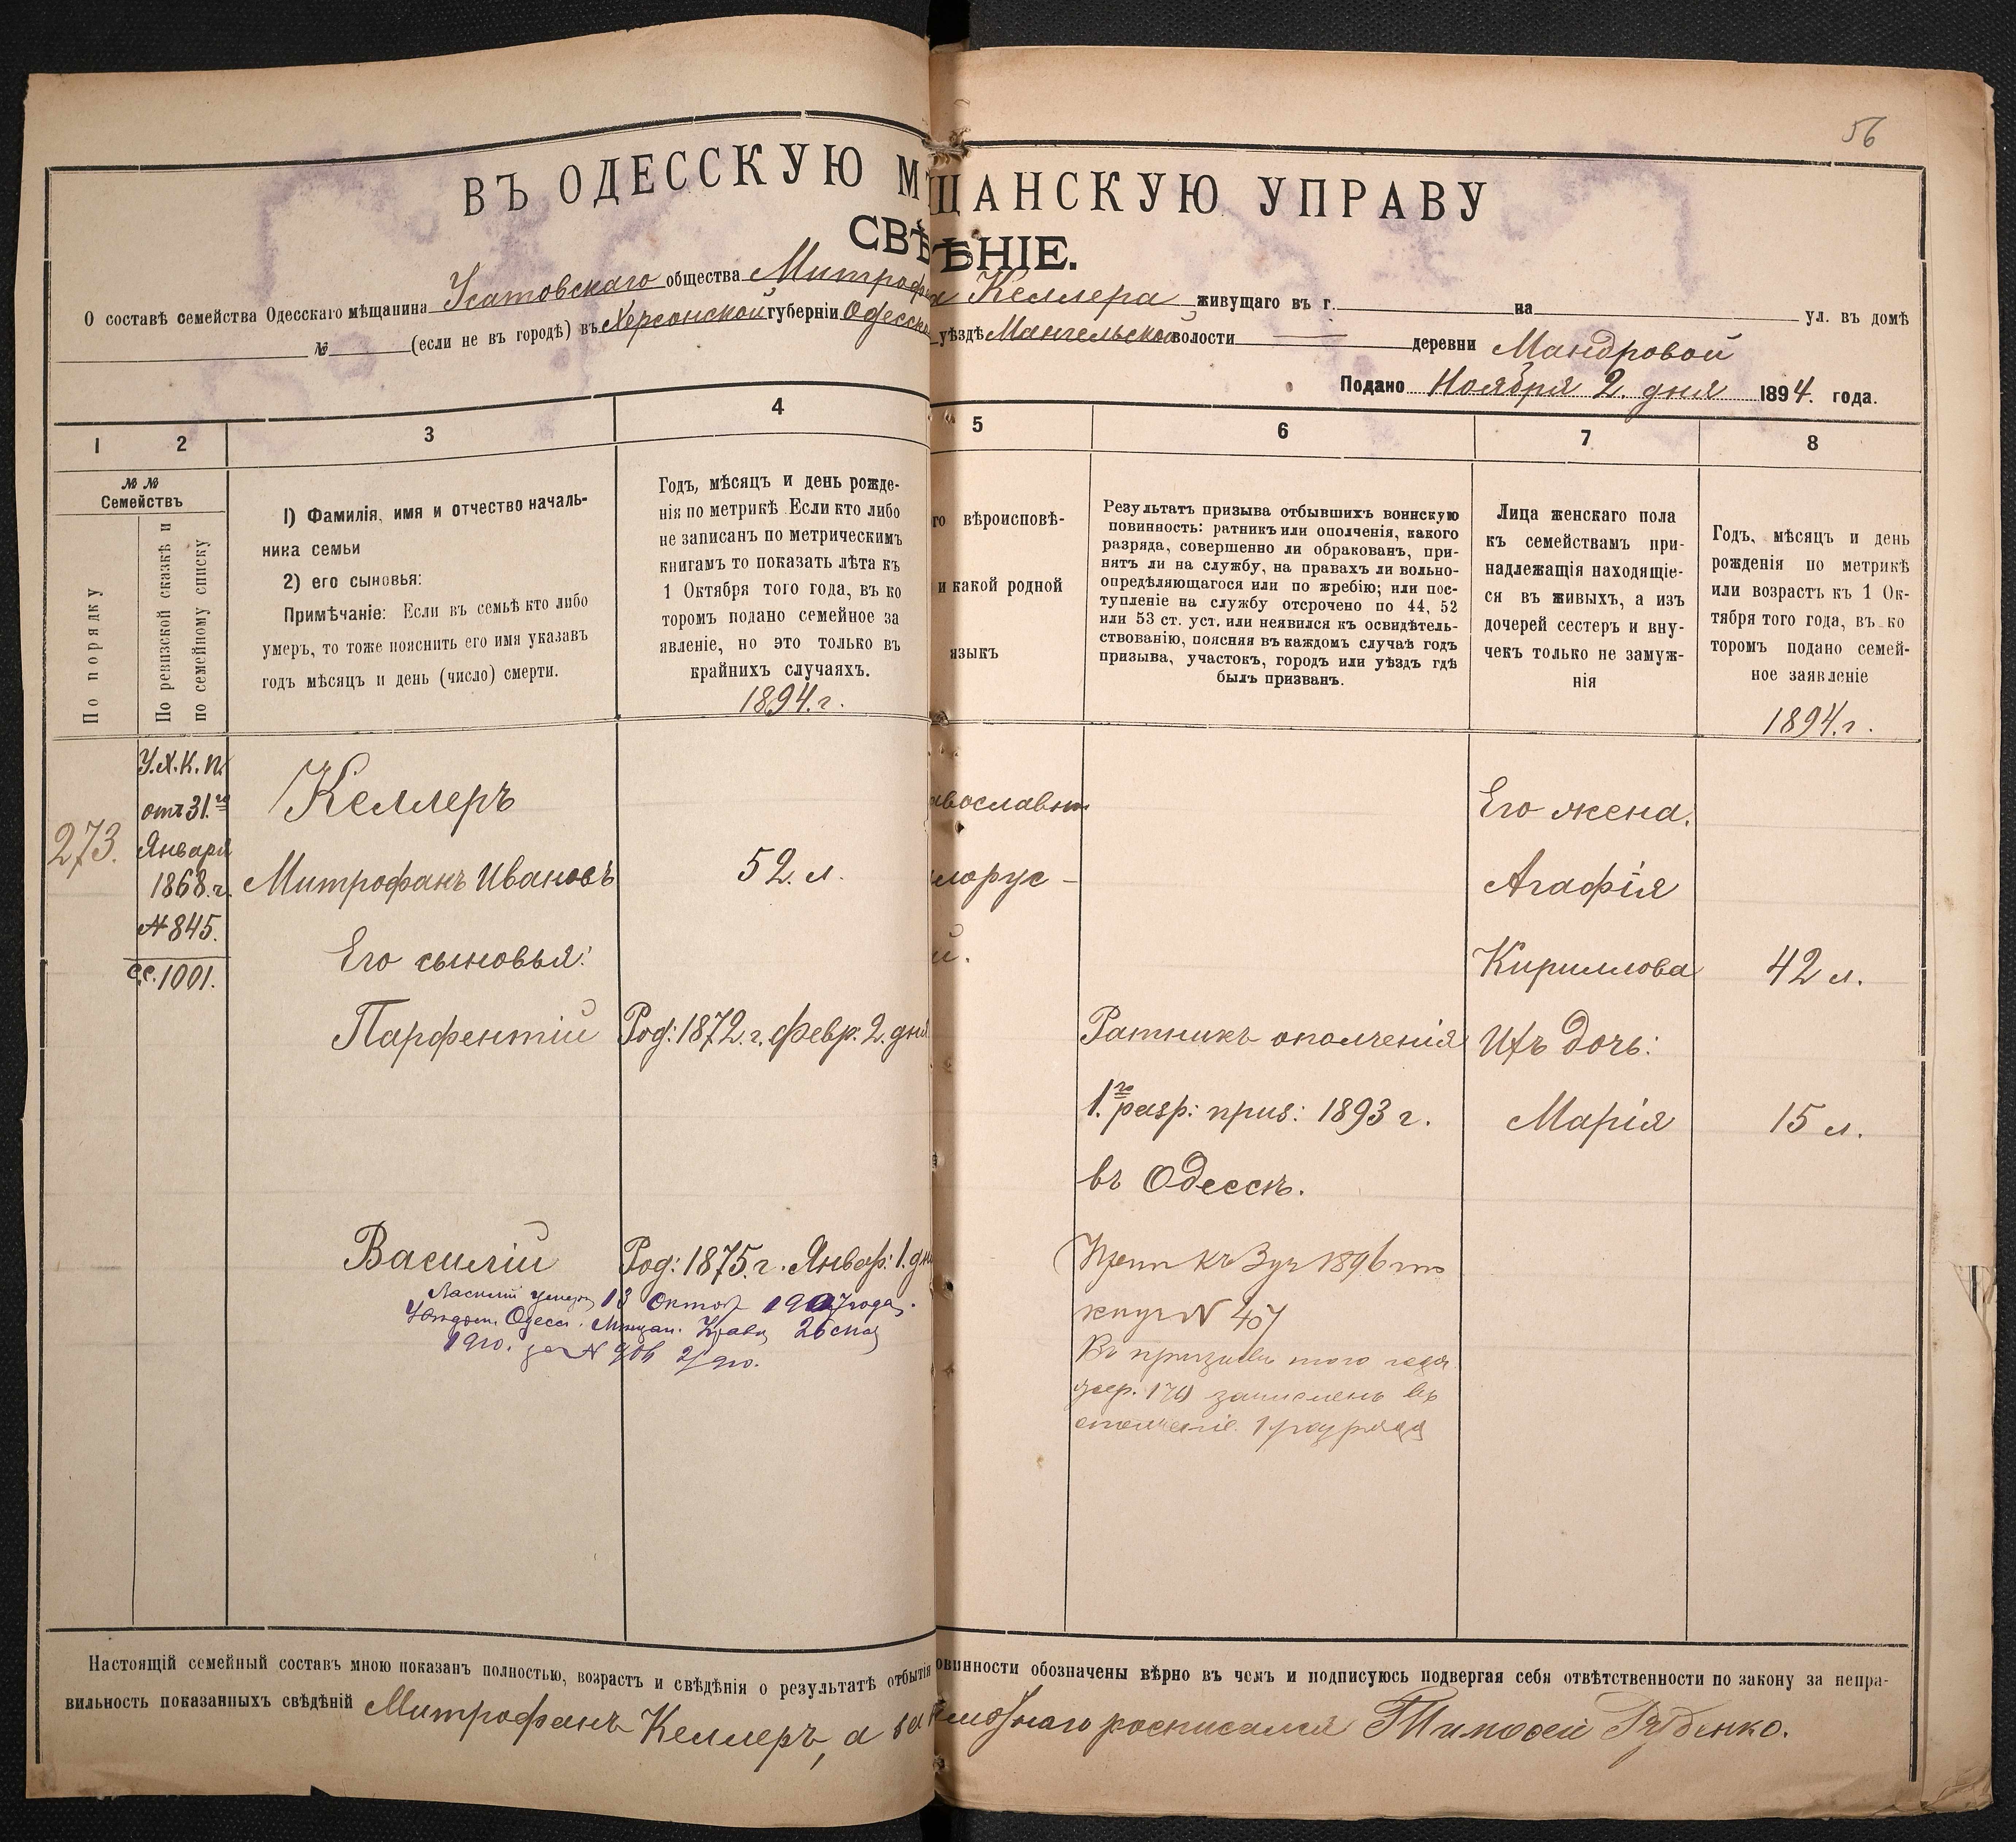 56
ВЪ ОДЕССКУЮ МѢЩАНСКУЮ УПРАВУ
СВѢДѢНІЕ.
О составѣ семейства Одесскаго мѣщанина Усатовскаго общества Митрофана Келлера живущаго въ г. на ул. въ домѣ
№ (если не въ городѣ) въ Херсонской губерніи Одесско уѣздѣ волости деревни Мандровой
Подано Ноября 2. дня 1894. года.
1 2 3 4 5 6 7 8
№ № Семействъ
По порядку
По ревизской сказкѣ и
по семейному списку
1) Фамилія, имя и отчество началь-
ника семьи
2) его сыновья:
Примѣчаніе: Если въ семьѣ кто либо
умеръ, то тоже пояснить его имя указавъ
годъ мѣсяцъ и день (число) смерти.
Годъ, мѣсяцъ и день рожде-
нія по метрикѣ. Если кто либо
не записанъ по метрическимъ
книгамъ то показать лѣта къ
1 Октября того года, въ ко
торомъ подано семейное за
явленіе, но это только въ
крайнихъ случаяхъ.
1894.г.
го вѣроисповѣ-
и какой родной
языкъ
Результатъ призыва отбывшихъ воинскую
повинность: ратникъ или ополченія, какого
разряда, совершенно ли обракованъ, при-
нятъ ли на службу, на правахъ ли вольно-
опредѣляющагося или по жребію; или пос-
тупленіе на службу отсрочено по 44, 52
или 53 ст. уст. или неявился къ освидѣтель-
ствованію, поясняя въ каждомъ случаѣ годъ
призыва, участокъ, городъ или уѣздъ гдѣ
былъ призванъ.
Лица женскаго пола
къ семействамъ при-
надлежащія находящіе-
ся въ живыхъ, а изъ
дочерей сестеръ и вну-
чекъ только не замуж-
нія
Годъ, мѣсяцъ и день
рожденія по метрикѣ
или возрастъ къ 1 Ок-
тября того года, въ ко
торомъ подано семей-
ное заявленіе
1894.г.
273.
У.Х.К.П.
отъ 31.го
Января
1868.г.
№845.
сс.1001.
Келлеръ
Митрофанъ Ивановъ 52.л.
Его сыновья:
Парфентій Род: 1872.г. февр: 2. дня
Василій Род: 1875.г. Январ: 1. дн
Василій умеръ 13 Октяб 1907 года.
Удостов. Одесс. Мѣщан. Управы 26 мая
1910. за №
авославн
лорус-
й.
Ратникъ ополченія
1.го разр: приз: 1893 г.
въ Одессѣ.
къ 3 уч 1896 по
книг N 457
Въ призывъ того года
жер. 170 зачисленъ въ
ополченіе 1 разряда
Его жена.
Агафія
Кириллова 42 л.
Ихъ дочь:
Марія 15 л.
Настоящій семейный составъ мною показанъ полностью, возрастъ и свѣдѣнія о результатѣ отбытія овинности обозначены вѣрно въ чемъ и подписуюсь подвергая себя отвѣтственности по закону за непра-
вильность показанныхъ свѣдѣній Митрофанъ Келлеръ, а за росписался Тимофей Рябенко.